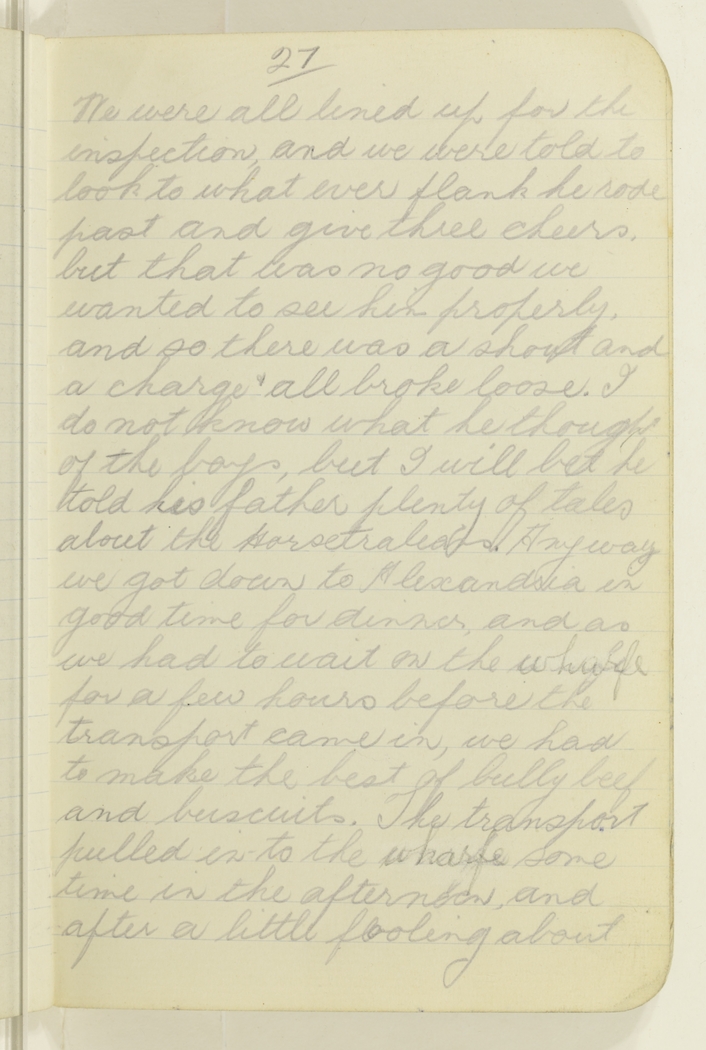 27
We were all lined up for the
inspection, and we were told to
look to what ever flank he rode
past and give three cheers.
but that was no good we
wanted to see him properly.
and so there was a shout and
a charge & all broke loose. I
do not know what he thought
of the boys, but I will bet he
told his father plenty of tales
about the Horsetraleans. Anyway
we got down to Alexandria in
good time for dinner, and as
we had to wait on the wharfe
for a few hours before the
transport came in, we had
to make the best of bully beef
and buscuits. The transport
pulled in to the wharfe some
time in the afternoon, and
after a little fooling about